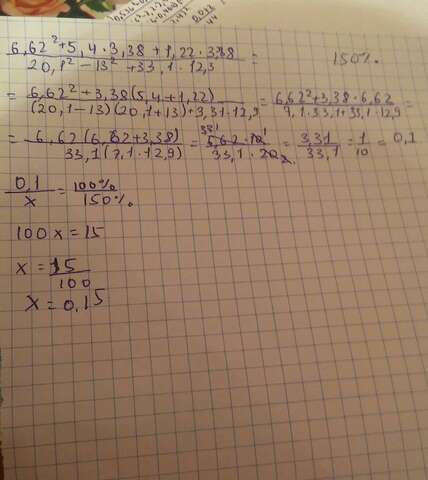 6,62² + 5,4 · 3,38 + 1,22 · 3,38 / 20,1² - 13² + 33,1 · 12,9 = 150%
= 6,62² + 3,38(5,4 + 1,22) / (20,1 - 13)(20,1 + 13) + 3,31 · 12,9 = 6,62² + 3,38 · 6,62 / 7,1 · 33,1 + 33,1 · 12,9 =
= 6,62(6,62 + 3,38) / 33,1(7,1 · 12,9) = 6,62 · 10 / 33,1 · 20 = 3,31 / 33,1 = 1/10 = 0,1
0,1 / x = 100% / 150%
100x = 15
x = 15 / 100
x = 0,15